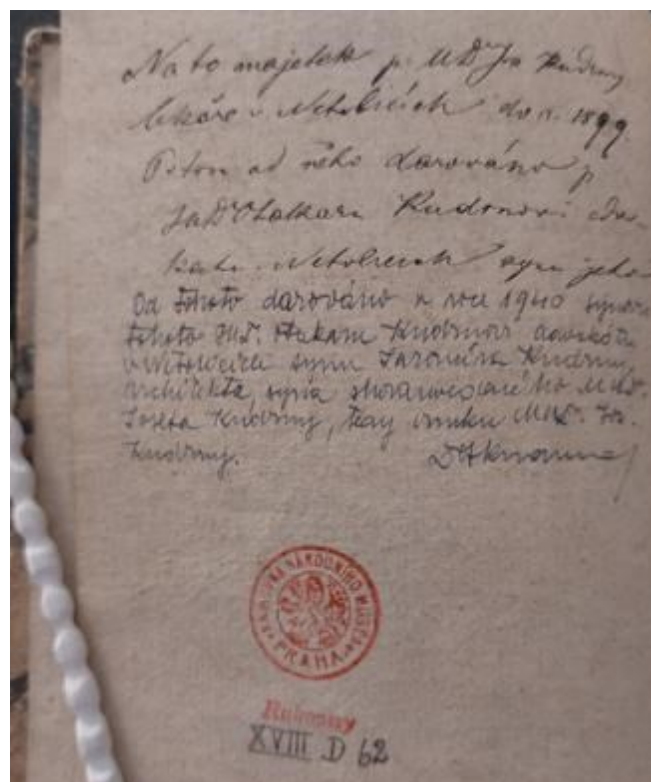 Na to majetek p. MUDra Jos. Kudrny
lékaře v Netolicích do r. 1899.
Potom od něho darováno p
JUDr Otakaru Kudrnovi
v Netolicích synu jeho
Od tohoto darováno v roce 1940 synovi
tohoto JUDr. Otakara Kudrny advokáta
v Netolicích synu Jaromíru Kudrny,
architekta, syna MUDr.
Josefa Kudrny, tedy vnuku MUDr. Jos.
Kudrny.
KNIHOVNA NÁRODNÍHO MUSEA
PRAHA
Rukopisy
XVIII D 62